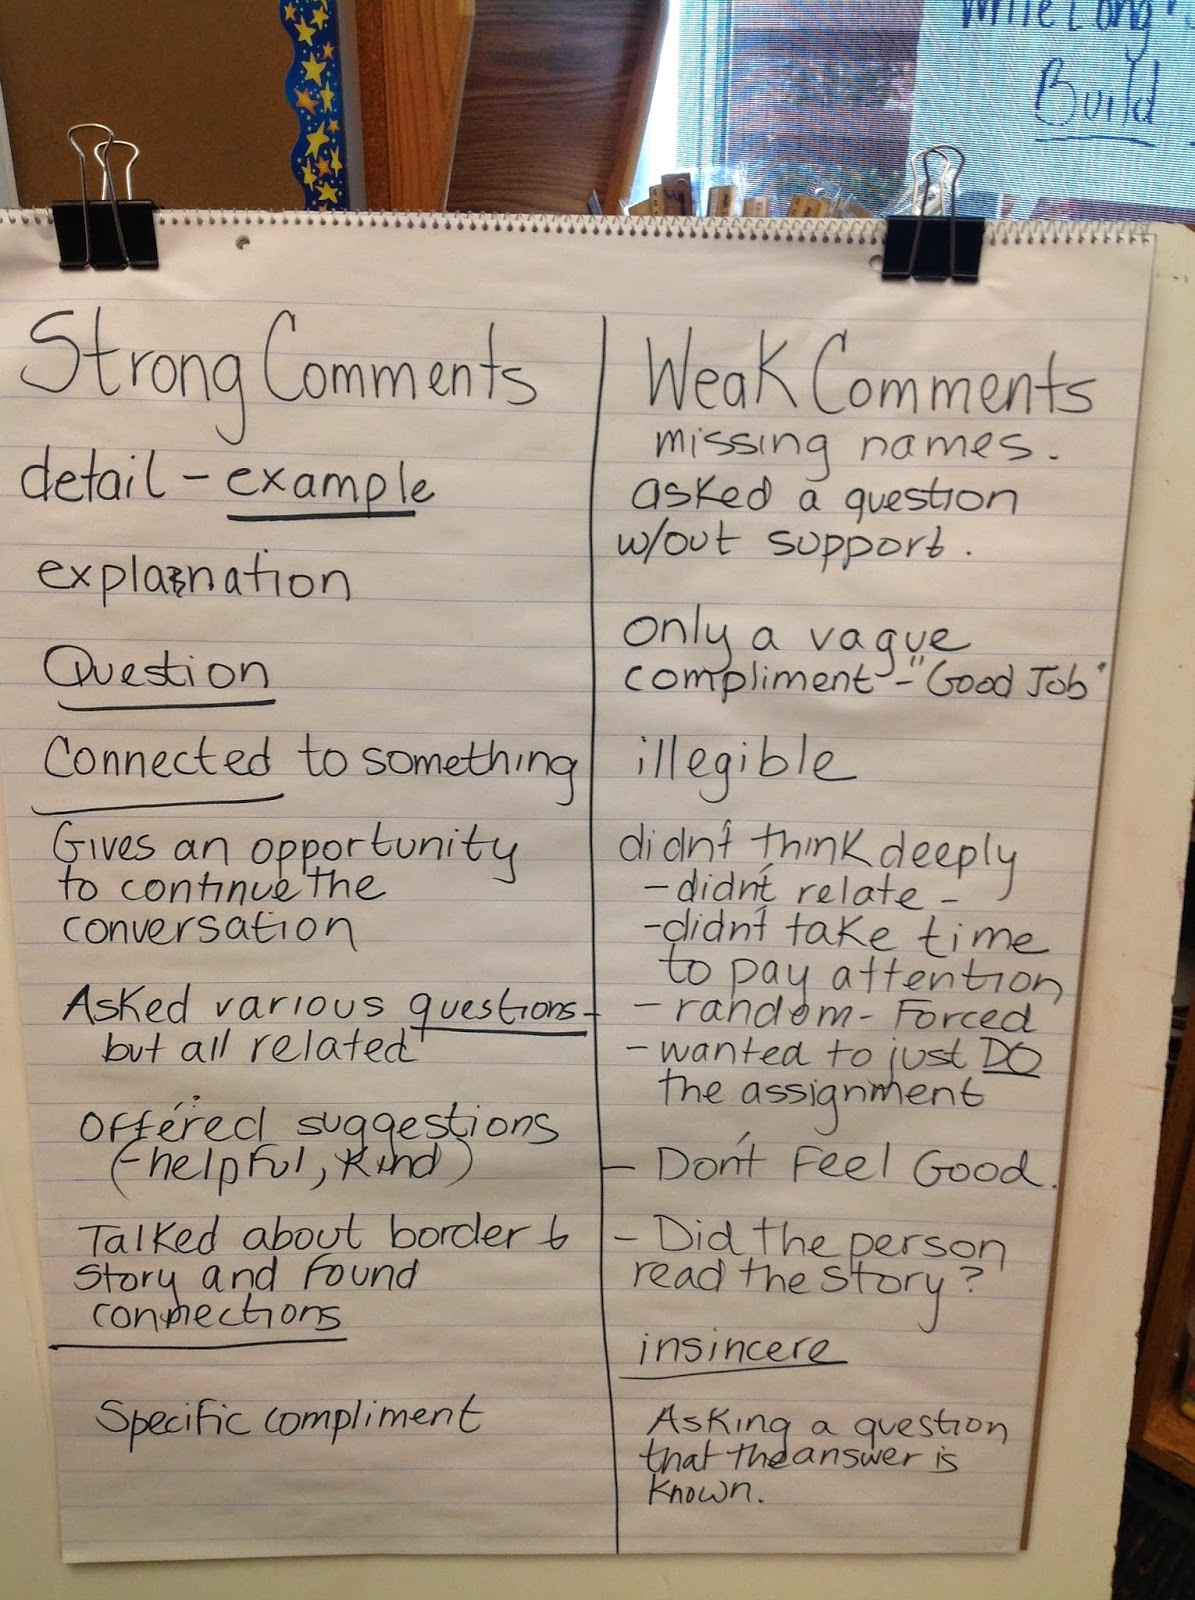 Write Long
Build
Strong Comments
detail - example
explanation
Question
Connected to something
Gives an opportunity
to continue the
conversation
Asked various questions -
but all related
offered suggestions
(-helpful, kind)
Talked about border &
story and found
connections
Specific compliment
Weak Comments
missing names.
asked a question
w/out support.
only a vague
compliment - "Good Job"
illegible
didn't think deeply
- didn't relate -
- didn't take time
to pay attention
- random - Forced
- wanted to just DO
the assignment
- Don't Feel Good.
- Did the person
read the story?
insincere
Asking a question
that the answer is
known.